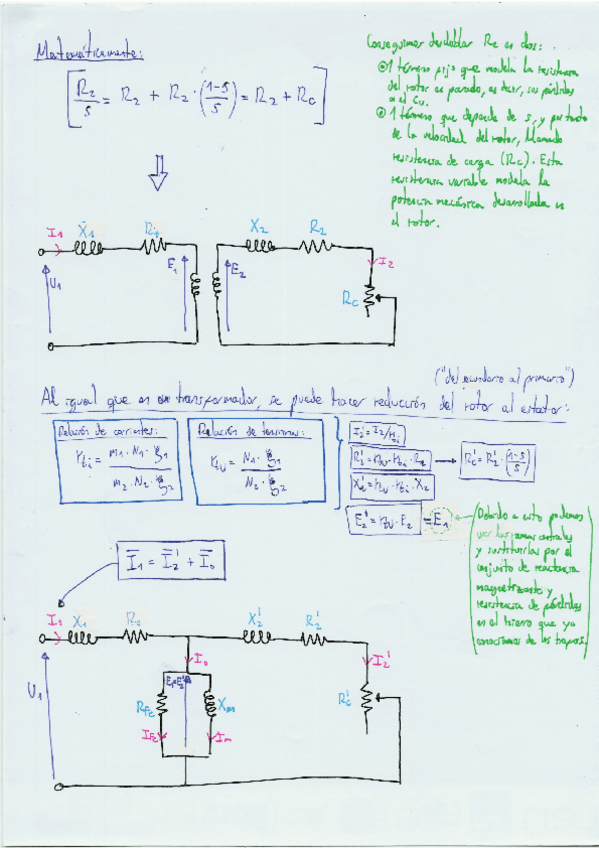 Matemáticamente:
[R2/s = R2 + R2·(1-s/s) = R2 + Rc]
Conseguimos desdoblar R2 en dos:
1 término fijo que modela la resistencia
del rotor en parado, es decir, sus pérdidas
en el Cu.
1 término que depende de s, y por tanto
de la velocidad del rotor, llamado
resistencia de carga (Rc). Esta
resistencia variable modela la
potencia mecánica desarrollada en
el rotor.
I1 X1 R1 X2 R2
E1 E2 I2
U1 Rc
("del secundario al primario")
Al igual que en un transformador, se puede hacer reducción del rotor al estator:
Relación de corrientes:
rti = m1·N1·ξ1 / m2·N2·ξ2
Relación de tensiones:
rtv = N1·ξ1 / N2·ξ2
I2' = I2/rti
R2' = rtv·rti·R2 → Rc' = R2'·(1-s/s)
X2' = rtv·rti·X2
E2' = rtv·E2 = E1
(Debido a esto podemos
unir las ramas centrales
y sustituirlas por el
conjunto de reactancia
magnetizante y
resistencia de pérdidas
en el hierro que ya
conocíamos de los trafos.)
I1 = I2' + Io
I1 X1 R1 X2' R2'
Io I2'
U1 RFe E1=E2' Xm Rc'
IFe Im